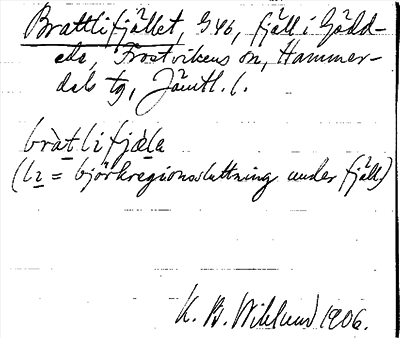 Brattlifjället, G46, fjäll i Gädd-
ede, Frostvikens sn, Hammer-
dals tg, Jämtl. l.
bràt̲lifjæ̀la
(lı̲ = björkregionssluttning under fjäll)
K. B. Wiklund 1906.